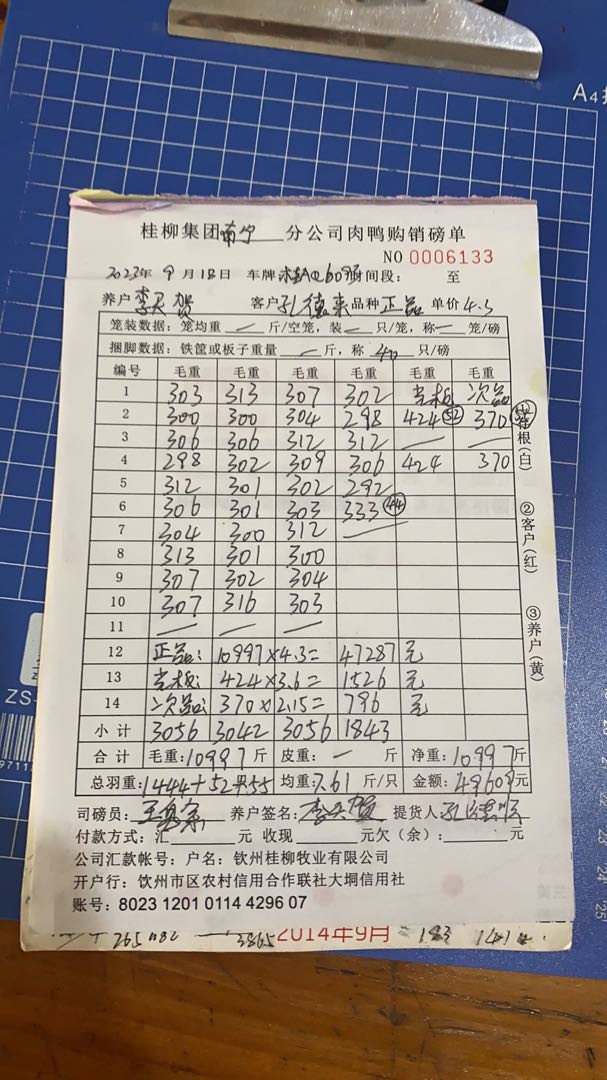 A4
桂柳集团南宁分公司肉鸭购销磅单
NO 0006133
2023年9月1日 车牌 时间段: 至
养户 李天贺 客户 孔德来 品种 正品 单价 4.3
笼装数据:笼均重 — 斤/空笼,装 — 只/笼,称 — 笼/磅
捆脚数据:铁筐或板子重量 — 斤,称 40 只/磅
编号 毛重 毛重 毛重 毛重 毛重 毛重
1 303 313 307 302 次品
2 300 300 304 298 424 52 370
3 306 306 312 312 — —
4 298 302 309 306 424 370
5 312 301 302 292
6 306 301 303 333 44
7 304 300 312 —
8 313 301 300
9 307 302 304
10 307 316 303
11 — — —
12 正品: 10997×4.3= 47287 元
13 424×3.6= 1526 元
14 次品: 370×2.15= 796 元
小计 3056 3042 3056 1843
合计 毛重:10997斤 皮重: — 斤 净重:10997斤
总羽重:1444+52 55 均重:7.61 斤/只 金额:49609元
司磅员: 养户签名:李天贺 提货人:
付款方式:汇 元 收现 元欠(余): 元
公司汇款帐号:户名:钦州桂柳牧业有限公司
开户行:钦州市区农村信用合作联社大垌信用社
账号:8023 1201 0114 4296 07
存根(白)
②客户(红)
③养户(黄)
2014年9月
3865
183
ZS-
23
24
25